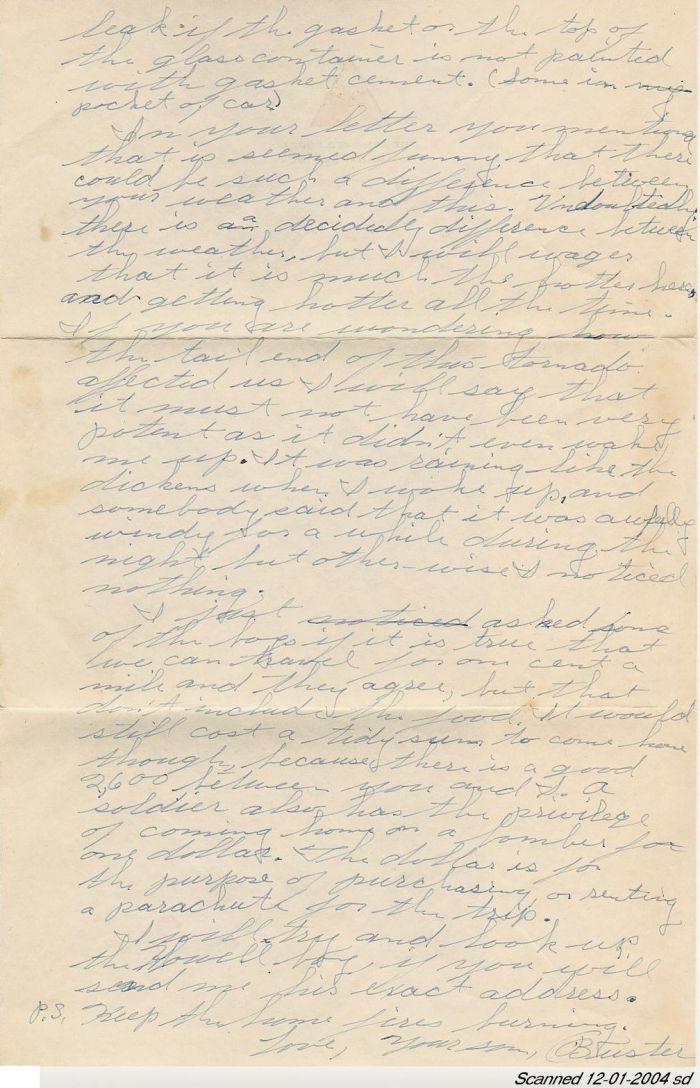 leak if the gasket on the top of
the glass container is not painted
with gasket cement. (Some in my
pocket of car)
In your letter you mentioned
that is seemed funny that there
could be such a difference between
your weather and this. Undoubtedly
there is a decidedly difference between
the weather, but I will wager
that it is much the hotter here,
and getting hotter all the time.
If you are wondering how
the tail end of this tornado
affected us I will say that
it must not have been very
potent as it didn't even wake
me up. It was raining like the
dickens when I woke up, and
somebody said that it was awfully
windy for a while during the
night but other-wise I noticed
nothing.
I just noticed asked some
of the boys if it is true that
we can travel for one cent a
mile and they agree, but that
don't include the food. It would
still cost a tidy sum to come home
though, because there is a good
2,600 between you and I. A
soldier also has the privilege
of coming home on a bomber for
one dollar. The dollar is for
the purpose of purchasing or renting
a parachute for the trip.
I will try and look up
the Howell boy, if you will
send me his exact address.
P.S. Keep the home fires burning.
Love, Your son, Buster
Scanned 12-01-2004 sd